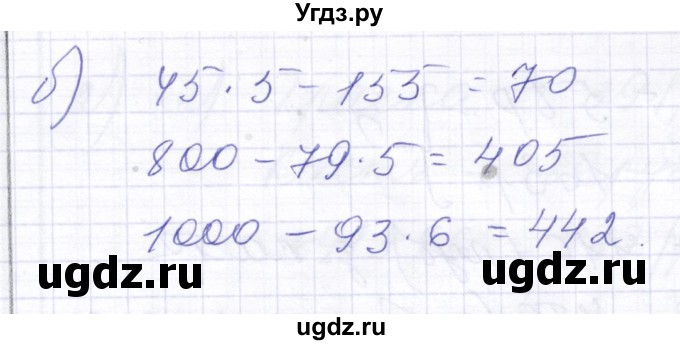 Угдз.ру
б) 45·5 - 155 = 70
800 - 79·5 = 405
1000 - 93·6 = 442.
ugdz.ru ugdz.ru
ugdz.ru